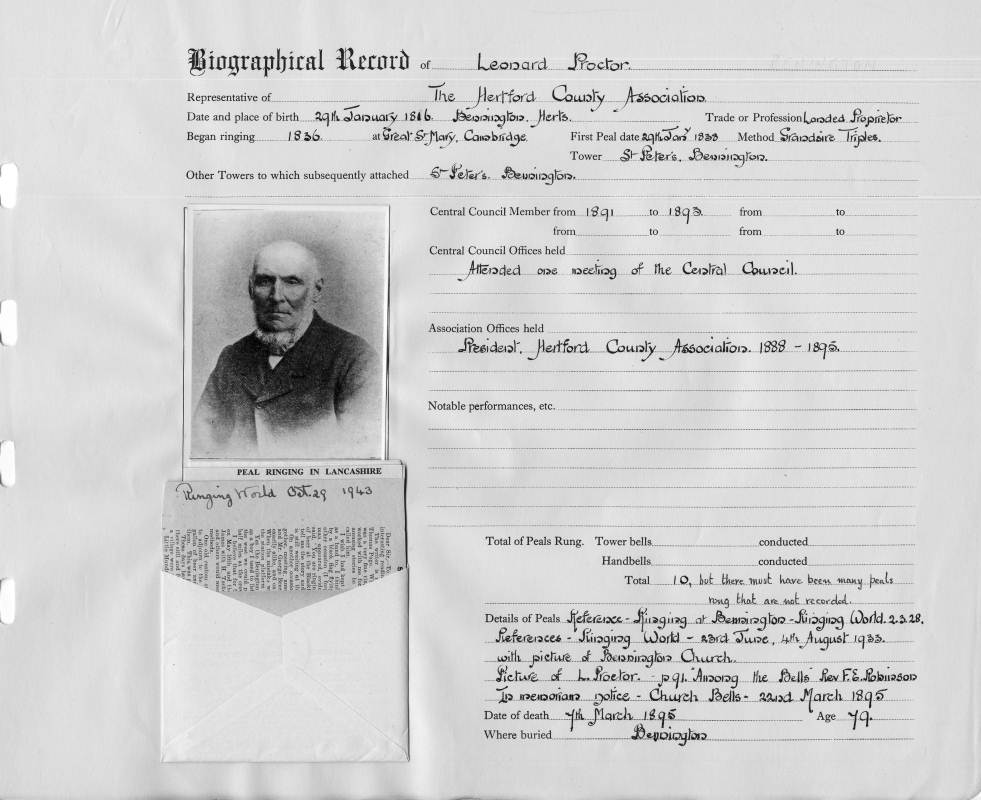 Biographical Record of Leonard Proctor.
Representative of The Hertford County Association.
Date and place of birth 29th January 1816. Bennington, Herts. Trade or Profession Landed Proprietor
Began ringing 1836. at Great St Mary, Cambridge. First Peal date 29th Jany 1838 Method Grandsire Triples.
Tower St Peter's, Bennington.
Other Towers to which subsequently attached St Peter's. Bennington.
Central Council Member from 1891 to 1893. from to
from to from to
Central Council Offices held
Attended one meeting of the Central Council.
Association Offices held
President. Hertford County Association. 1888 - 1895.
Notable performances, etc.
PEAL RINGING IN LANCASHIRE
Ringing World Oct. 29 1943
Total of Peals Rung. Tower bells conducted
Handbells conducted
Total 10, but there must have been many peals
rung that are not recorded.
Details of Peals Reference - Ringing at Bennington - Ringing World. 2.3.28.
References - Ringing World - 23rd June, 4th August 1933.
with picture of Bennington Church.
Picture of L. Proctor. - p91. Among the Bells Rev F.E. Robinson
In memoriam notice - Church Bells - 22nd March 1895
Date of death 7th March 1895 Age 79.
Where buried Bennington